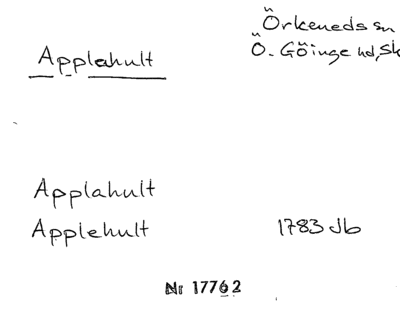 Applahult
Örkeneds sn
Ö. Göinge hd, Sk
Applahult
Applehult 1783 Jb
Nr 17762